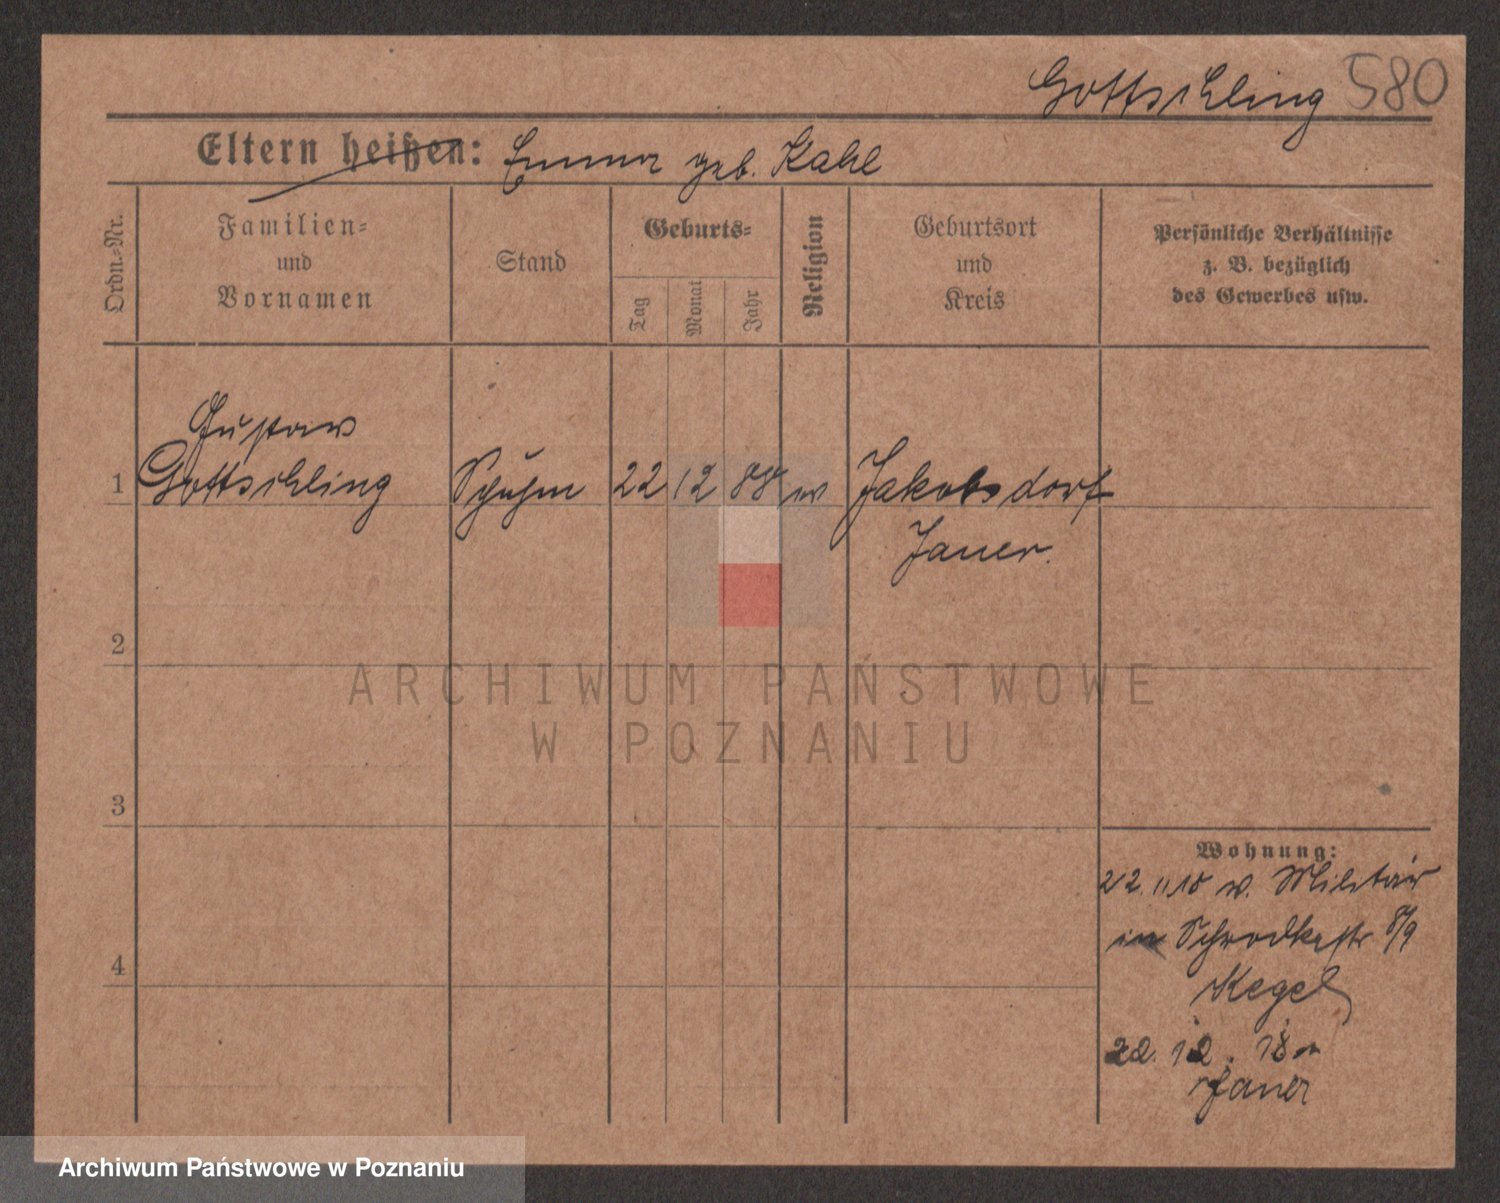 Gottschling 580
Eltern heißen: Emma geb. Kahl
Ordn.-Nr.
Familien-
und
Vornamen
Stand
Geburts-
Tag
Monat
Jahr
Religion
Geburtsort
und
Kreis
Persönliche Verhältnisse
z. B. bezüglich
des Gewerbes usw.
Gustav
1 Gottschling Schuhm 22 12 88 Jakobsdorf
Jauer.
2
3
4
Wohnung:
22. 11 18 v. Militär
in Schrodkastr 8/9
Kegel
22. 12. 18 n
Jauer
ARCHIWUM PAŃSTWOWE
W POZNANIU
Archiwum Państwowe w Poznaniu